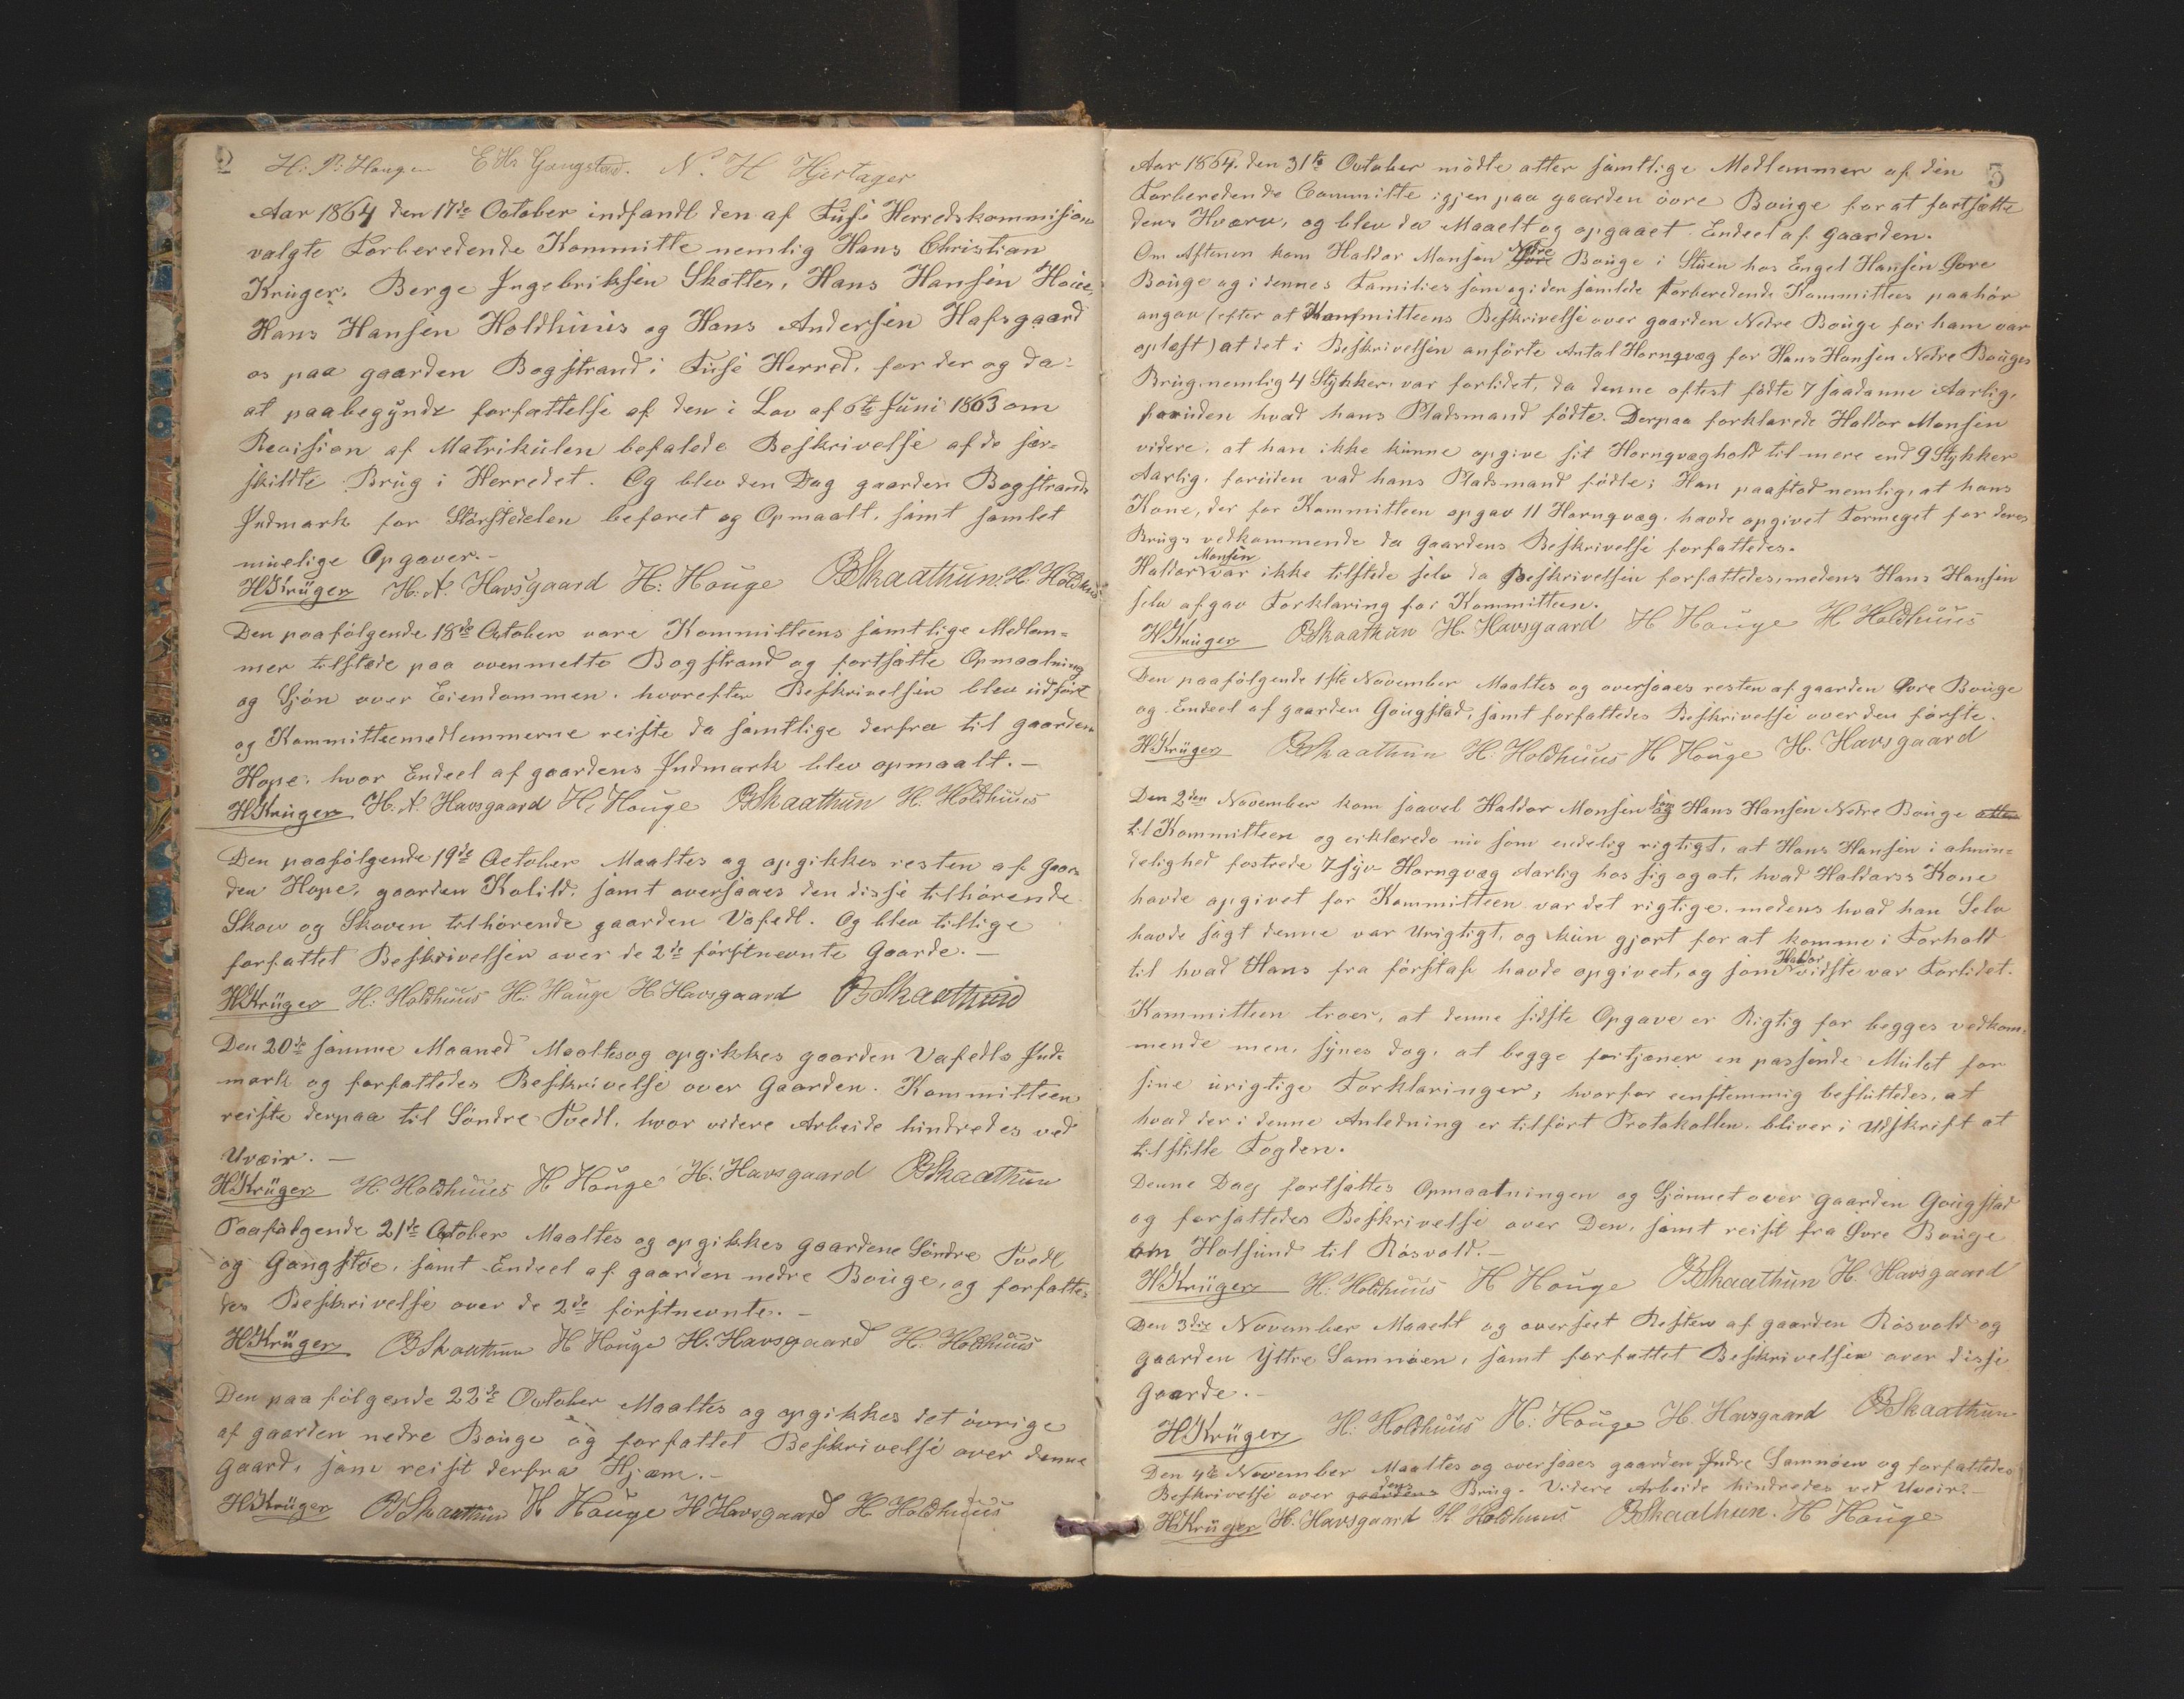 2
H: P: Hougen E Hs Gangstad. N. H Hjertager
Aar 1864 den 17de October indfandt den af Fuse Herredskommision
valgte Forberedende Kommitte nemlig Hans Christian
Krüger, Berge Ingebriksen Skotte, Hans Hansen
Hans Hansen Holdhuus og Hans Andersen Hafsgaard
os paa gaarden Bogstrand i Fuse Herred, for der og da
at paabegynde forfattelse af den i Lov af 6te Juni 1863 om
Revision af Matrikulen befalede Beskrivelse af de sær-
skildte Brug i Herredet. Og blev den Dag gaarden Bogstrands
Indmark for Störstedelen befaret og Opmaalt, samt samlet
muelige Opgaver.-
HKrüger H: A: Havsgaard H: Houge BSkaathun H: Holdhus
Den paafölgende 18de October vare Kommitteens samtlige Medlem-
mer tilstede paa ovenmelte Bogstrand og fortsatte Opmaalning
og Sjön over Eiendommen, hvorefter Beskrivelsen blev udfört
og Kommitteemedlemmerne reiste da samtlige derfra til gaarden
Hope, hvor Endeel af gaardens Indmark blev opmaalt.-
HKrüger H. A. Havsgaard H: Houge BSkaathun H. Holdhuus
Den paafölgende 19de October Maaltes og opgikkes resten af Gaar-
den Hope, gaarden Kolild, samt oversaaes den disse tilhörende
Skov og Skoven tilhörende gaarden Vafedl. Og blev tillige
forfattet Beskrivelsen over de 2de förstnevnte Gaarde.-
HKrüger H: Holdhuus H: Hauge H Havsgaard BSkaathun
Den 20de samme Maaned Maaltes og opgikkes gaarden Vafedls Ind-
mark og forfattedes Beskrivelse over Gaarden. Kommitteen
reiste derpaa til Söndre Tvedt, hvor videre Arbeide hindredes ved
Uveir.-
HKrüger H. Holdhuus H Houge H: Havsgaard BSkaathun
Paafölgende 21de October Maaltes og opgikkes gaardene Söndre Tvedt
og Gangstöe, samt Endeel af gaarden nedre Bouge, og forfatte-
des Beskrivelse over de 2de förstnevnte.-
HKrüger BSkaathun H Houge H. Havsgaard H. Holdhuus
Den paa fölgende 22de October Maaltes og opgikkes det övrige
af gaarden nedre Bouge og forfattet Beskrivelse over denne
gaard, som reist derfra Hjem.-
HKrüger BSkaathun H Houge H Havsgaard H Holdhuus
3
Aar 1864. den 31te October mödte atter samtlige Medlemmer af den
Forberedende Committe igjen paa gaarden övre Bouge for at fortsætte
dens Hværv, og blev da Maaelt og opgaaet Endeel af gaarden.
Om Aftenen kom Haldor Monsen Nedre Bouge i Stuen hos Engel Hansen Övre
Bouge og i dennes Families som og i den samlede Forberedende Kommittees paahör
angav (efter at Kommitteens Beskrivelse over gaarden Nedre Bouge for ham var
oplæst) at det i Beskrivelsen anförte Antal Hornqvæg for Hans Hansen Nedre Bouges
Brug, nemlig 4 Stykker, var forlidet, da denne oftest födte 7 saadanne Aarlig,
foruden hvad hans Pladsmand födte. Derpaa forklarede Haldor Monsen
videre, at han ikke kunne opgive sit Hornqvæghold til mere end 9 Stykker
Aarlig, foruden vad hans Pladsmand födte; Han paastod nemlig, at hans
Kone, der for Kommitteen opgav 11 Hornqvæg, havde opgivet Formeget for deres
Brugs vedkommende da gaardens Beskrivelse forfattedes.
Haldor Monsen var ikke tilstede selv da Beskrivelsen forfattedes, medens Hans Hansen
selv afgav Forklaring for Kommitteen.
HKrüger BSkaathun H. Havsgaard H Houge H Holdhuus
Den paafölgende 1ste November Maaltes og oversaaes resten af gaarden Övre Bouge
og Endeel af gaarden Gougstad, samt forfattedes Beskrivelse over den förste.
HKrüger BSkaathun H. Holdhuus H Houge H. Havsgaard
Den 2den November kom saavel Haldor Monsen som Hans Hansen Nedre Bouge atter
til Kommitteen og erklærede nu som endelig rigtigt, at Hans Hansen i almin-
delighed fostrede 7 syv Hornqvæg Aarlig hos sig og at, hvad Haldors Kone
havde opgivet for Kommitteen var det rigtige, medens hvad han Selv
havde sagt denne var Urigtigt, og kun gjort for at komme i Forhold
til hvad Hans fra förstaf havde opgivet, og som Haldor vidste var Forlidet.
Kommitteen troer, at denne sidste Opgave er Rigtig for begges vedkom-
mende men, synes dog, at begge fortjener en passende Mulct for
sine urigtige Forklaringer, hvorfor eenstemmig besluttedes, at
hvad der i denne Anledning er tilfört Protokollen, bliver i Udskrift at
tilstille Fogden.
Denne Dag fortsattes Opmaalningen og Sjönnet over gaarden Gougstad
og forfattedes Beskrivelse over Den, samt reist fra Övre Bouge
om Holsund til Rösvold.-
HKrüger H. Holdhuus H Houge BSkaathun H. Havsgaard
Den 3die November Maaelt og overseet Resten af gaarden Rösvold og
gaarden Yttre Samnöen, samt forfattet Beskrivelsen over disse
Gaarde.-
HKrüger H: Holdhuus H: Houge H. Havsgaard BSkaathun
Den 4de November Maaltes og oversaaes gaarden Indre Samnöen og forfattedes
Beskrivelse over gaardens dens Brug. Videre Arbeide hindredes ved Uveir.-
HKrüger H. Havsgaard H Holdhuus BSkaathun. H Houge